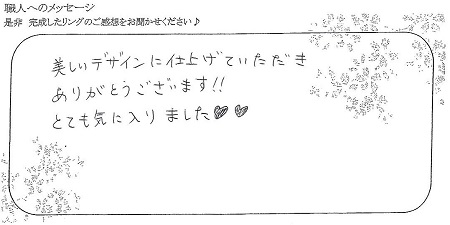 職人へのメッセージ
是非 完成したリングのご感想をお聞かせください♪
美しいデザインに仕上げていただき
ありがとうございます!!
とても気に入りました♥♥